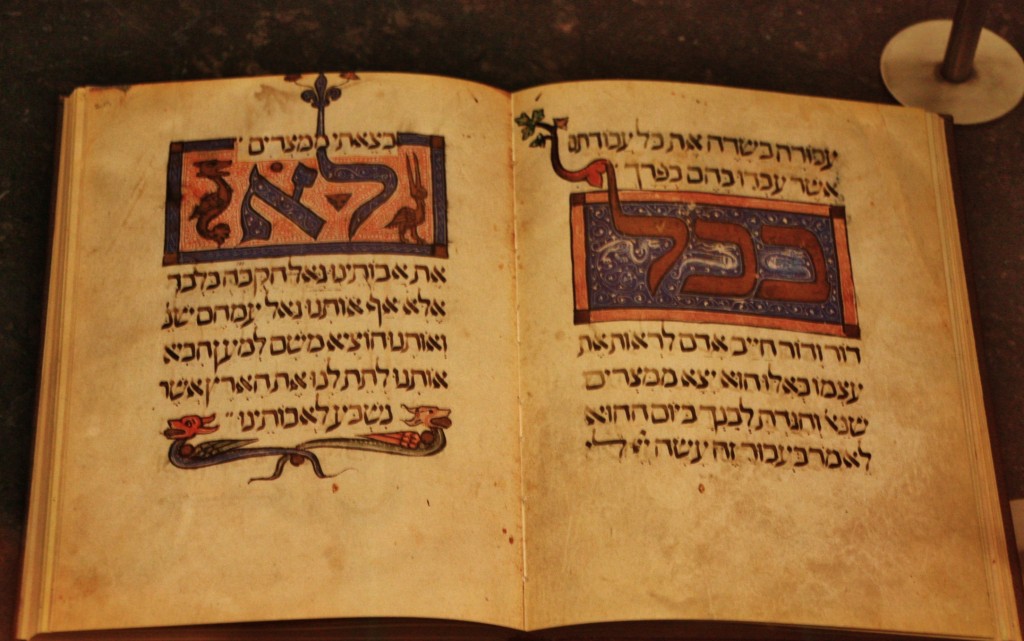 עבודה בשדה את כל עבודתם
אשר עבדו בהם בפרך
בכל
דור ודור חייב אדם לראות את
עצמו כאלו הוא יצא ממצרים
שנא והגדת לבנך ביום ההוא
לאמר בעבור זה עשה יי לי
בצאתי ממצרים
לא
את אבותינו גאל הקבה בלבד
אלא אף אותנו גאל עמהם שנ
ואותנו הוציא משם למען הביא
אותנו לתת לנו את הארץ אשר
נשבע לאבותינו